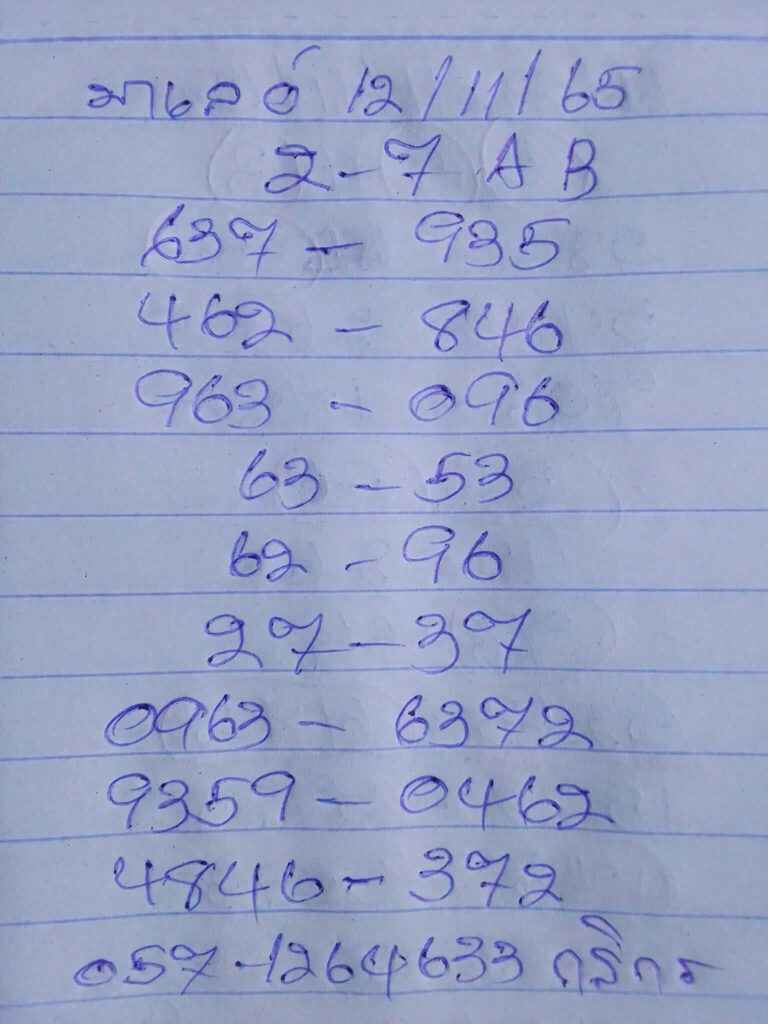 มาเลย์ 12/11/65
2-7 A B
637 - 935
462 - 846
963 - 096
63 - 53
62 - 96
27 - 37
0963 - 6372
9359 - 0462
4846 - 372
057-1264633